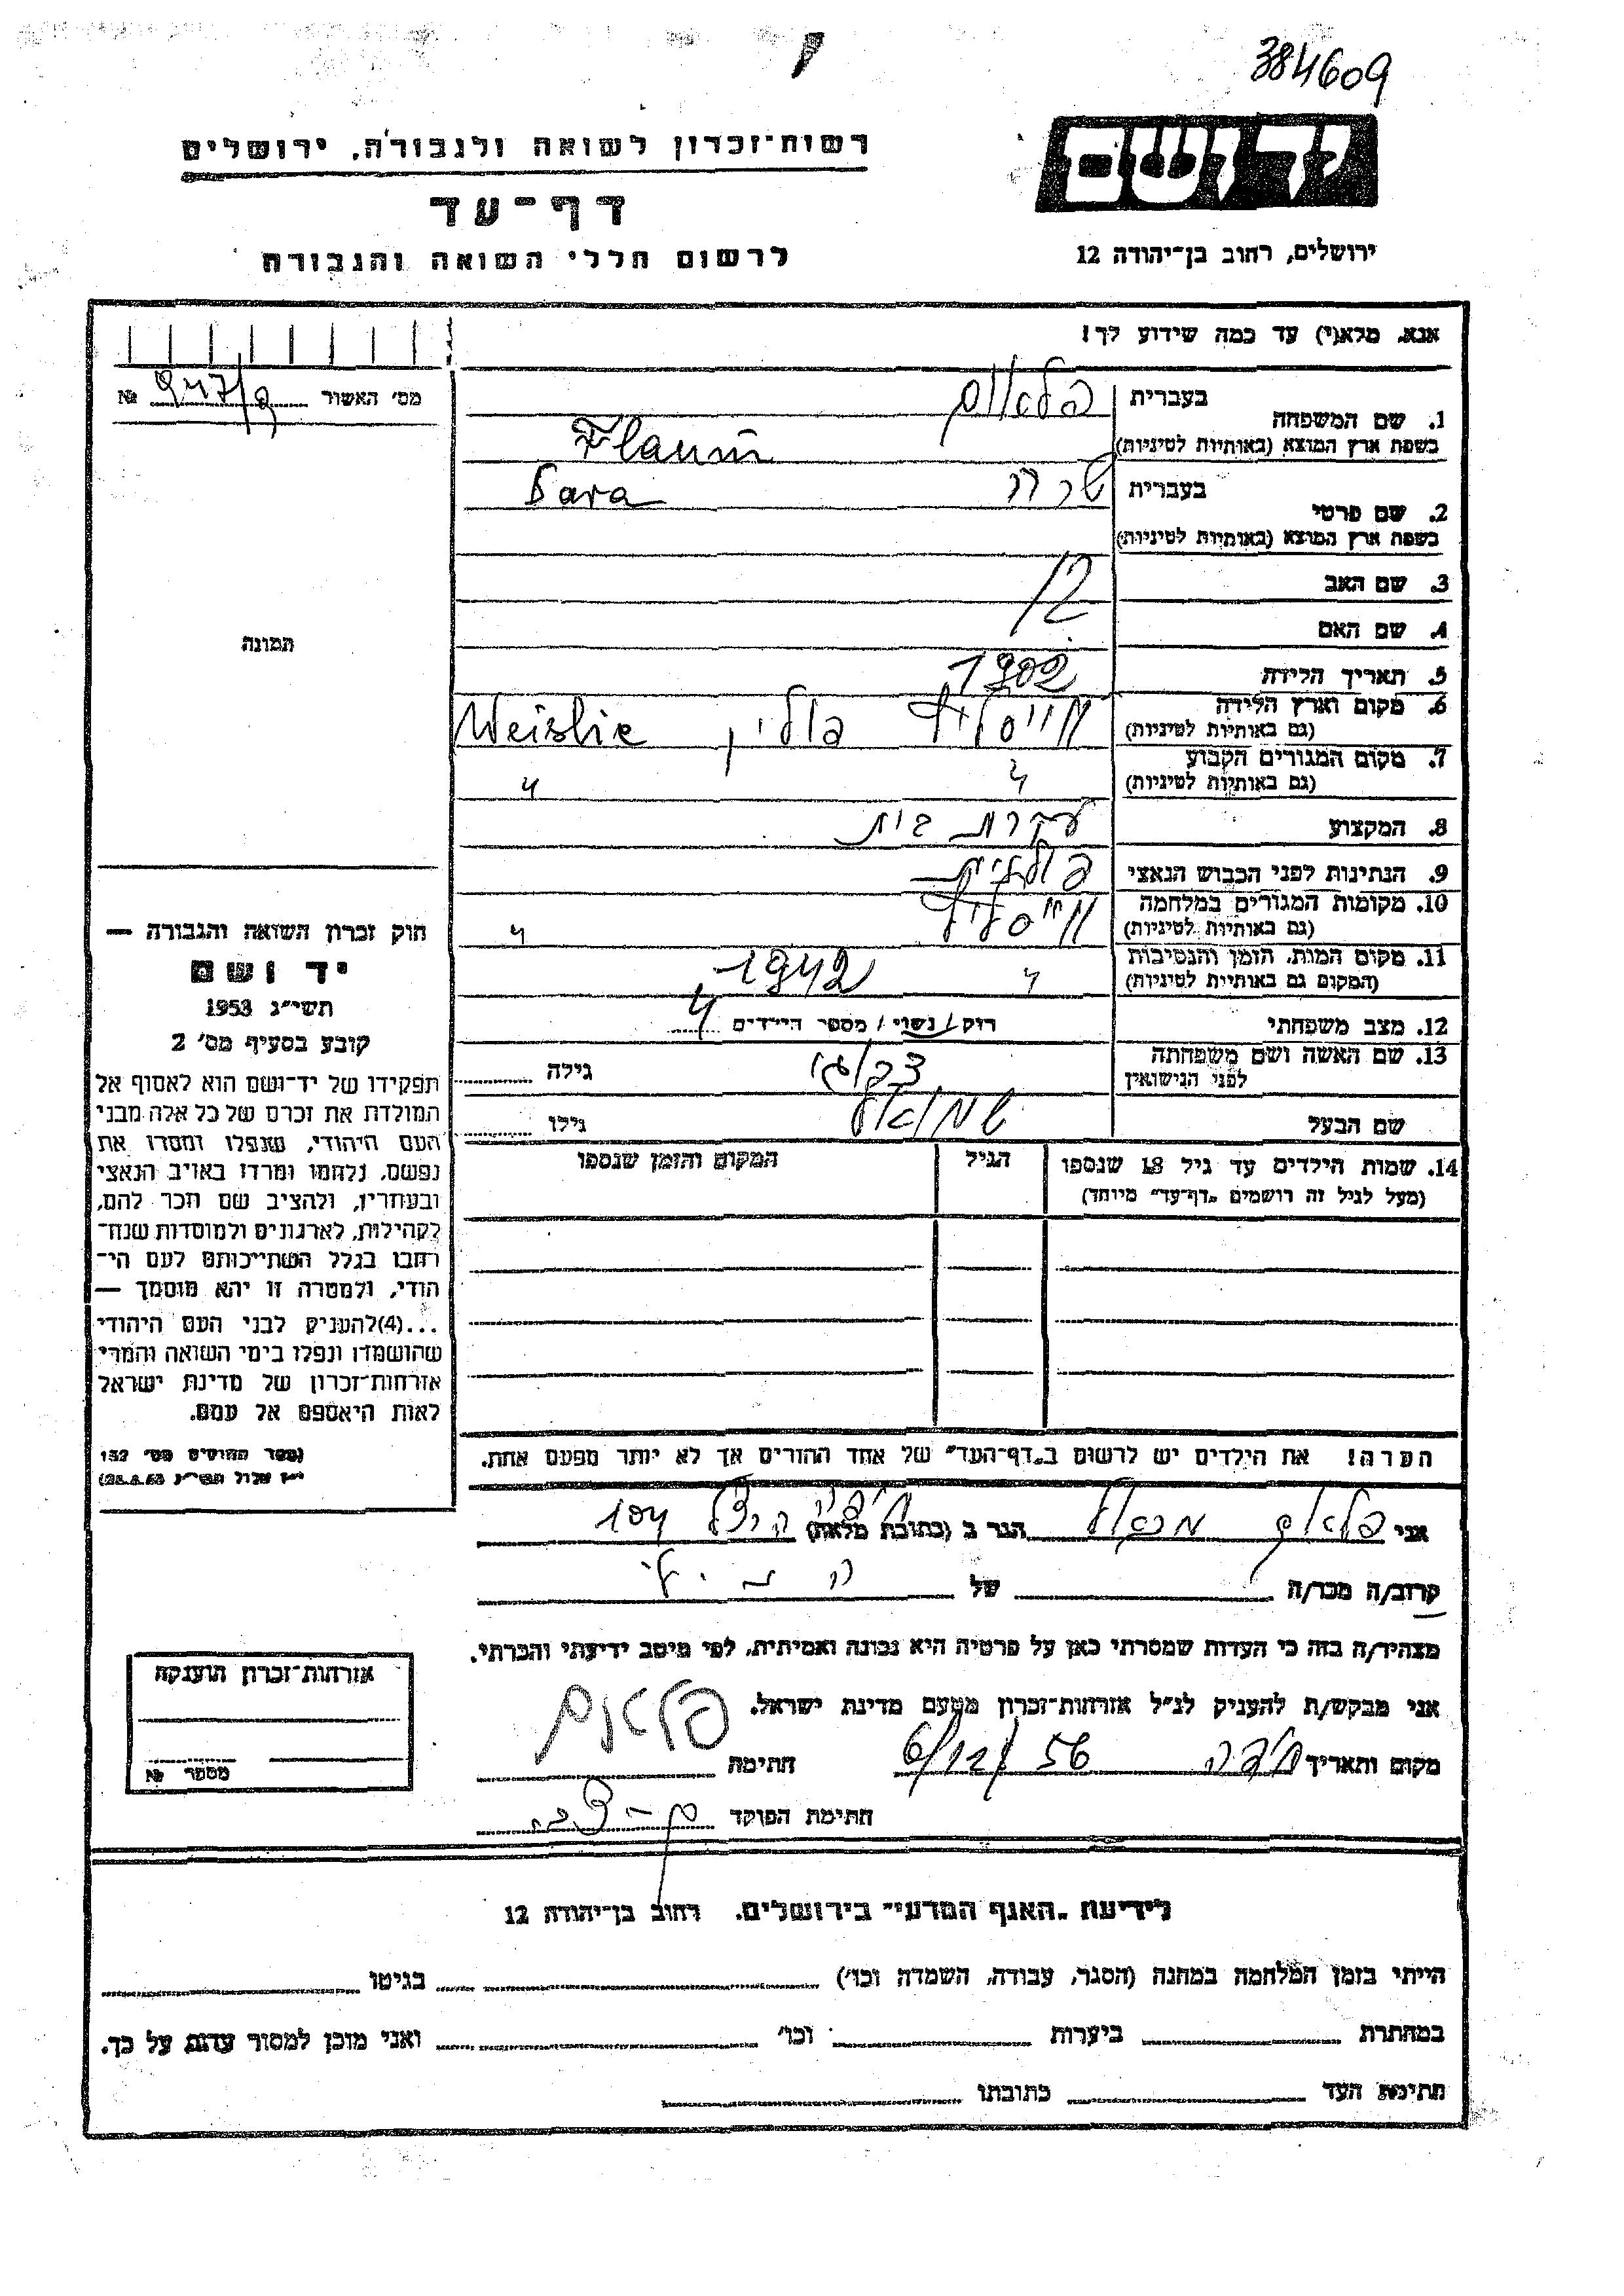 384609
רשות־זכרון לשואה ולגבורה, ירושלים
יד ושם
דף־עד
לרשום חללי השואה והגבורה
ירושלים, רחוב בן־יהודה 12
אנא, מלא(י) עד כמה שידוע לך!
מס' האשור №
1. שם המשפחה
בעברית פלאום
בשפת ארץ המוצא (באותיות לטיניות) Flaum
2. שם פרטי
בעברית שרה Sara
בשפת ארץ המוצא (באותיות לטיניות)
3. שם האב
4. שם האם
5. תאריך הלידה 1902
6. מקום וארץ הלידה פולין Weislie
(גם באותיות לטיניות)
7. מקום המגורים הקבוע
(גם באותיות לטיניות)
8. המקצוע עקרת בית
9. הנתינות לפני הכבוש הנאצי פולנית
10. מקומות המגורים במלחמה
(גם באותיות לטיניות)
11. מקום המות, הזמן והנסיבות 1942
(המקום גם באותיות לטיניות)
12. מצב משפחתי רוק / נשוי / מספר הילדים 4
13. שם האשה ושם משפחתה
לפני הנישואין גילה
שם הבעל שמואל גילו
14. שמות הילדים עד גיל 18 שנספו הגיל המקום והזמן שנספו
(מעל לגיל זה רושמים „דף־עד" מיוחד)
תמונה
חוק זכרון השואה והגבורה —
יד ושם
תשי״ג 1953
קובע בסעיף מס' 2
תפקידו של יד־ושם הוא לאסוף אל
המולדת את זכרם של כל אלה מבני
העם היהודי, שנפלו ומסרו את
נפשם, נלחמו ומרדו באויב הנאצי
ובעוזריו, ולהציב שם וזכר להם,
לקהילות, לארגונים ולמוסדות שנח־
רחבו בגלל השתייכותם לעם הי־
הודי, ולמטרה זו יהא מוסמך —
...(4) להעניק לבני העם היהודי
שהושמדו ונפלו בימי השואה והמרי
אזרחות־זכרון של מדינת ישראל
לאות היאספם אל עמם.
(ספר החוקים מס' 132
י״ז אלול תשי״ג 28.8.53)
הערה! את הילדים יש לרשום ב„דף־העד" של אחד ההורים אך לא יותר מפעם אחת.
אני פלאום מכאל הגר ב (כתובת מלאה) חיפה הרצל 104
קרוב/ה מכר/ה של
מצהיר/ה בזה כי העדות שמסרתי כאן על פרטיה היא נכונה ואמיתית, לפי מיטב ידיעתי והכרתי.
אני מבקש/ת להעניק לנ״ל אזרחות־זכרון מטעם מדינת ישראל.
מקום ותאריך חיפה 6/12/56 חתימה פלאום
חתימת הפוקד
אזרחות־זכרון הוענקה
מספר №
לידיעת „האגף המדעי" בירושלים. רחוב בן־יהודה 12
הייתי בזמן המלחמה במחנה (הסגר, עבודה, השמדה וכו') בגיטו
במחתרת ביערות וכו' ואני מוכן למסור עדות על כך.
חתימת העד כתובתו